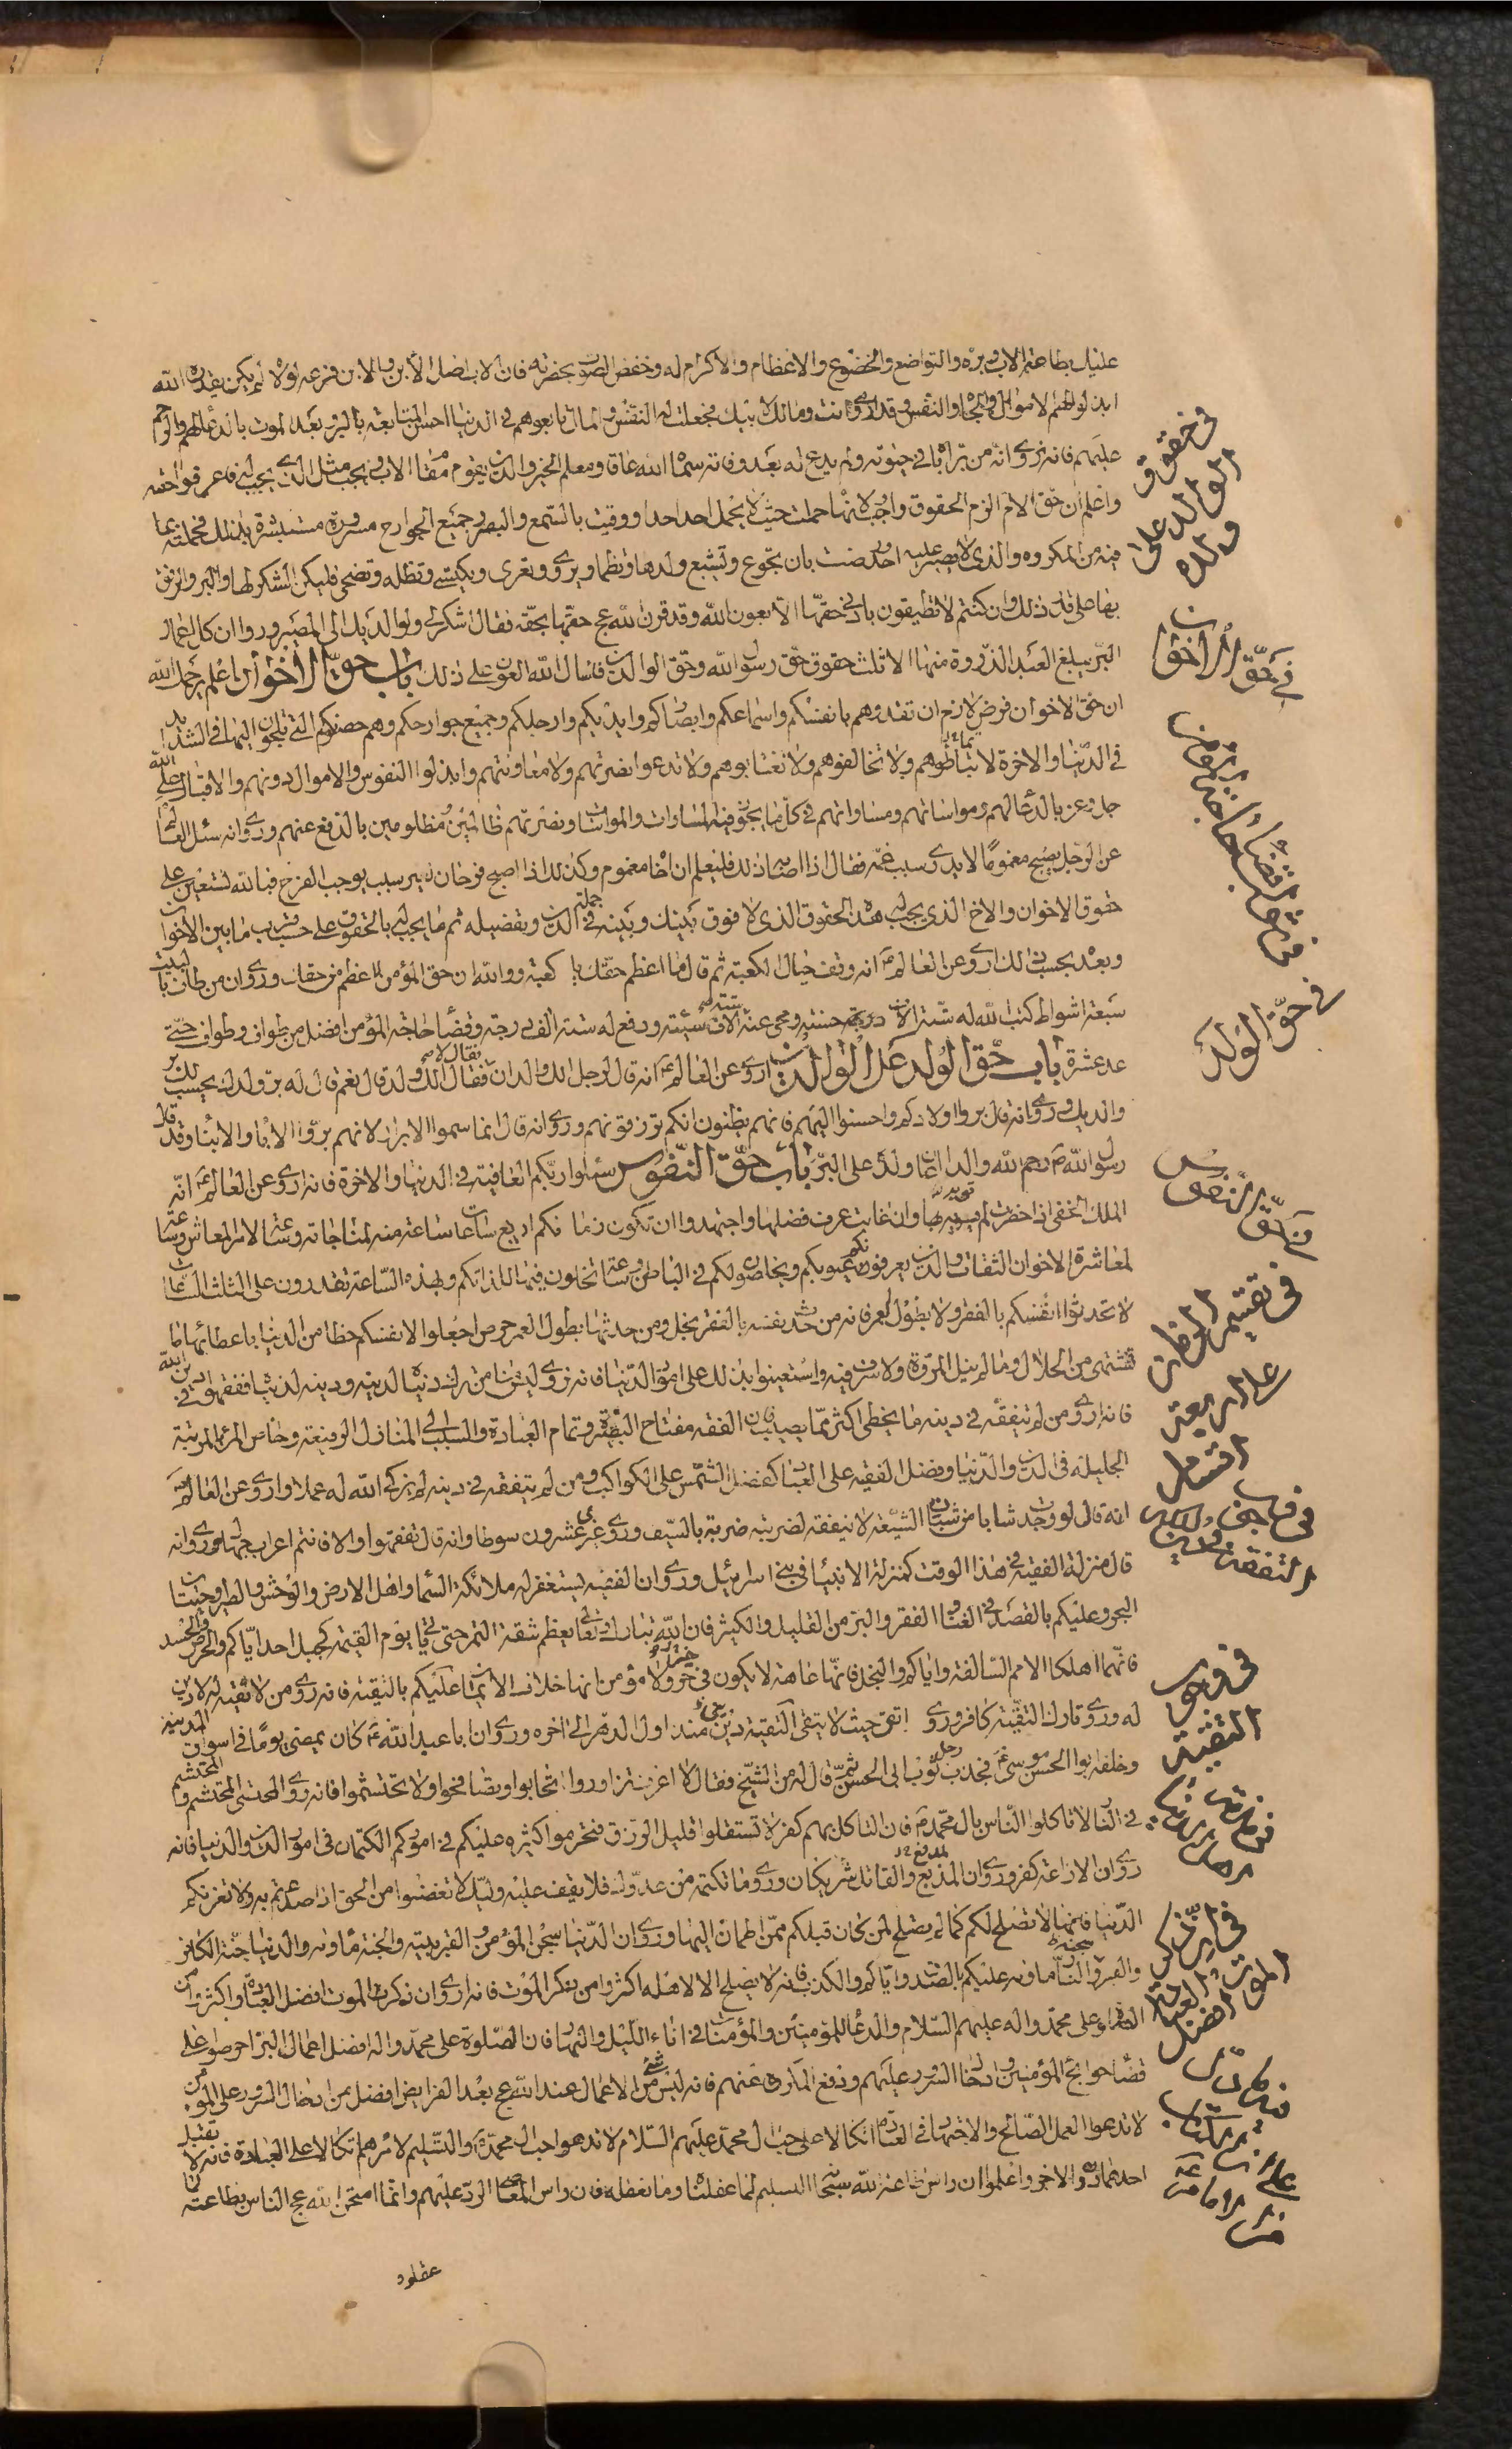 عليك بطاعة الاب وبره والتواضع والخضوع والاعظام والاكرام له وخفض الصوت بحضرته فان الاب اصل الابن والابن فرعه لولاه لم يكن بقدرة الله
ابذلوا لهم الاموال والجاه والنفس وقد اروى انت ومالك لابيك فجعلت له النفس والمال تابعوهم في الدنيا احسن المتابعة بالبر وبعد الموت بالدعاء لهم والترحم
عليهم فانه نروى انه من بر اباه في حيوته ولم يدع له بعد وفاته سماه الله عاقا ومعلم الخير والدين يقوم مقام الاب ويجب مثل الذي يجب له فاعرفوا حقه
واعلم ان حق الام الزم الحقوق واوجب لانها حملت حيث لا يحمل احد احدا ووقيت بالسمع والبصر وجميع الجوارح مسرورة مستبشرة بذلك فحملته بما
فيه من المكروه والذي لا يصبر عليه احد ورضيت بان تجوع ويشبع ولدها وتظما ويروى وتعرى ويكتسى وتظله وتضحى فليكن الشكر لها والبر والرفق
بها على قدر ذلك وان كنتم لا تطيقون بادنى حقها الا بعون الله وقد قرن الله عج حقها بحقه فقال اشكر لي ولوالديك الي المصير وروى ان كل اعمال
البر يبلغ العبد الذروة منها الا ثلث حقوق حق رسول الله وحق الوالدين فنسال الله العون على ذلك باب حق الاخوان اعلم يرحمك الله
ان حق الاخوان فرض لازم ان تفدوهم بانفسكم واسماعكم وابصاركم وايديكم وارجلكم وجميع جوارحكم وهم حصونكم التي تلجئون اليها في الشدايد
في الدنيا والاخرة لا تماطوهم ولا تخالفوهم ولا تغتابوهم ولا تدعوا نصرتهم ولا معاونتهم وابذلوا النفوس والاموال دونهم والاقبال على الله
جل وعز بالدعاء لهم ومواساتهم ومساواتهم في كل ما يجوز فيه المساوات والمواسات ونصرتهم ظالمين ومظلومين بالدفع عنهم وروى انه سئل العالم
عن الرجل يصبح مغموما لا يدرى سبب غمه فقال اذا اصابه ذلك فليعلم ان اخاه مغموم وكذلك اذا اصبح فرحان لغير سبب يوجب الفرح فبالله نستعين على
حقوق الاخوان والاخ الذي يجب له هذه الحقوق الذي لا فرق بينك وبينه في جملة الدين وتفصيله ثم ما يجب له بالحقوق على حسب قرب ما بين الاخوان
وبعده بحسب ذلك اروى عن العالم انه وقف حيال الكعبة ثم قال ما اعظم حقك يا كعبة ووالله ان حق المؤمن لاعظم من حقك وروى ان من طاف بالبيت
سبعة اشواط كتب الله له ستة الاف حسنة ومحى عنه ستة الاف سيئة ورفع له ستة الاف درجة وقضاء حاجة المؤمن افضل من طواف وطواف حتى
عد عشرة باب حق الولد على الوالدين اروى عن العالم انه قال لرجل الك والدان فقال لا فقال الك ولد قال نعم قال له بر ولدك يحسب لك بر
والديك وروى انه قال بروا اولادكم واحسنوا اليهم فانهم يظنون انكم ترزقونهم وروى انه قال انما سموا الابرار لانهم بروا الاباء والابناء وقد قال
رسول الله رحم الله والدا اعان ولده على البر باب حق النفوس سلوا ربكم العافية في الدنيا والاخرة فانه اروى عن العالم انه
الملك الخفي اذا حضرت لم يؤبه بها وان غابت عرف فضلها واجتهدوا ان يكون زمانكم اربع ساعات ساعة منه لمناجاته وساعة لامر المعاش وساعة
لمعاشرة الاخوان الثقات والذين يعرفونكم عيوبكم ويخلصون لكم في الباطن وساعة تخلون فيها للذاتكم وبهذه الساعة تقدرون على الثلث الساعات
لا تحدثوا انفسكم بالفقر ولا بطول العمر فانه من حدث نفسه بالفقر بخل ومن حدثها بطول العمر حرص اجعلوا لانفسكم حظا من الدنيا باعطائها ما
تشتهى من الحلال وما لم ينل المروة ولا سرف فيه واستعينوا بذلك على امور الدنيا فانه نروى ليس منا من ترك دنياه لدينه ودينه لدنياه وتفقهوا في دين الله
فانه اروى من لم يتفقه في دينه ما يخطى اكثر مما يصيب فان الفقه مفتاح البصيرة وتمام العبادة والسبب الى المنازل الرفيعة وخاص المرء المرتبة
الجليلة في الدين والدنيا وفضل الفقيه على العباد كفضل الشمس على الكواكب ومن لم يتفقه في دينه لم يزك الله له عملا واروى عن العالم
انه قال لو وجدت شابا من شبان الشيعة لا يتفقه لضربته ضربة بالسيف وروى غيرى عشرون سوطا وانه قال تفقهوا والا فانتم اعراب جهال وروى انه
قال منزلة الفقيه في هذا الوقت كمنزلة الانبياء في بني اسرائيل وروى ان الفقيه يستغفر له ملائكة السماء واهل الارض والوحش والطير وحيتان
البحر وعليكم بالقصد في الغنا والفقر والبر من القليل والكثير فان الله تبارك وتعالى يعظم شقة التمرة حتى ياتي يوم القيمة كجبل احد اياكم والحرص والحسد
فانهما اهلكا الامم السالفة واياكم والبخل فانها عاهة لا يكون في حر ولا مؤمن انها خلاف الايمان عليكم بالتقية فانه روى من لا تقية له لا دين
له وروى تارك التقية كافر وروى اتق حيث لا يتقى التقية دين منذ اول الدهر الى اخره وروى ان ابا عبد الله كان يمضى يوما في اسواق المدينة
وخلفه ابو الحسن موسى فجذب رجل ثوب ابى الحسن ثم قال له من الشيخ فقال لا اعرف تزاوروا تحابوا وتصافحوا ولا تحتشموا فانه روى المحتشم والمحتشم
في النار لا تاكلوا الناس بال محمد فان التاكل بهم كفر لا تستقلوا قليل الرزق فتحرموا كثيره عليكم في اموركم الكتمان في امور الدين والدنيا فانه
روى ان الاذاعة كفر وروى ان المذيع والقاتل شريكان وروى ما تكتمه من عدوك فلا يقف عليه وليك لا تغضبوا من الحق اذا صدعتم به ولا تغرنكم
الدنيا فانها لا تصلح لكم كما لم يصلح لمن كان قبلكم ممن اطمان اليها وروى ان الدنيا سجن المؤمن والقبر بيته والجنة ماواه والدنيا جنة الكافر
والقبر سجنه والنار ماواه عليكم بالصدق واياكم والكذب فانه لا يصلح الا لاهله اكثروا من ذكر الموت فانه اروى ان ذكر الموت افضل العبادة واكثروا من
الصلوة على محمد واله عليهم السلام والدعاء للمؤمنين والمؤمنات في اناء الليل والنهار فان الصلوة على محمد واله افضل اعمال البر احرصوا على
قضاء حوائج المؤمنين وادخال السرور عليهم ودفع المكروه عنهم فانه ليس شئ من الاعمال عند الله عج بعد الفرايض افضل من ادخال السرور على المؤمن
لا تدعوا العمل الصالح والاجتهاد في العبادة اتكالا على حب ال محمد عليهم السلام لا تدعوا حب ال محمد والتسليم لامرهم اتكالا على العبادة فانه لا تقبل
احدهما دون الاخر واعلموا ان راس طاعة الله سبحانه التسليم لما عقلناه وما لم نعقله فان راس المعاصى الرد عليهم وانما امتحن الله عج الناس بطاعته
عقلوه
في حقوق الوالد على ولده
في حق الاخوان
في ثواب قضاء حاجة المؤمن
في حق الولد
في حق النفوس
في تقسيم الوظايف على اربعة اقسام
في وجوب التفقه في الدين
في وجوب التقية
في ان ذكر الموت افضل العبادة